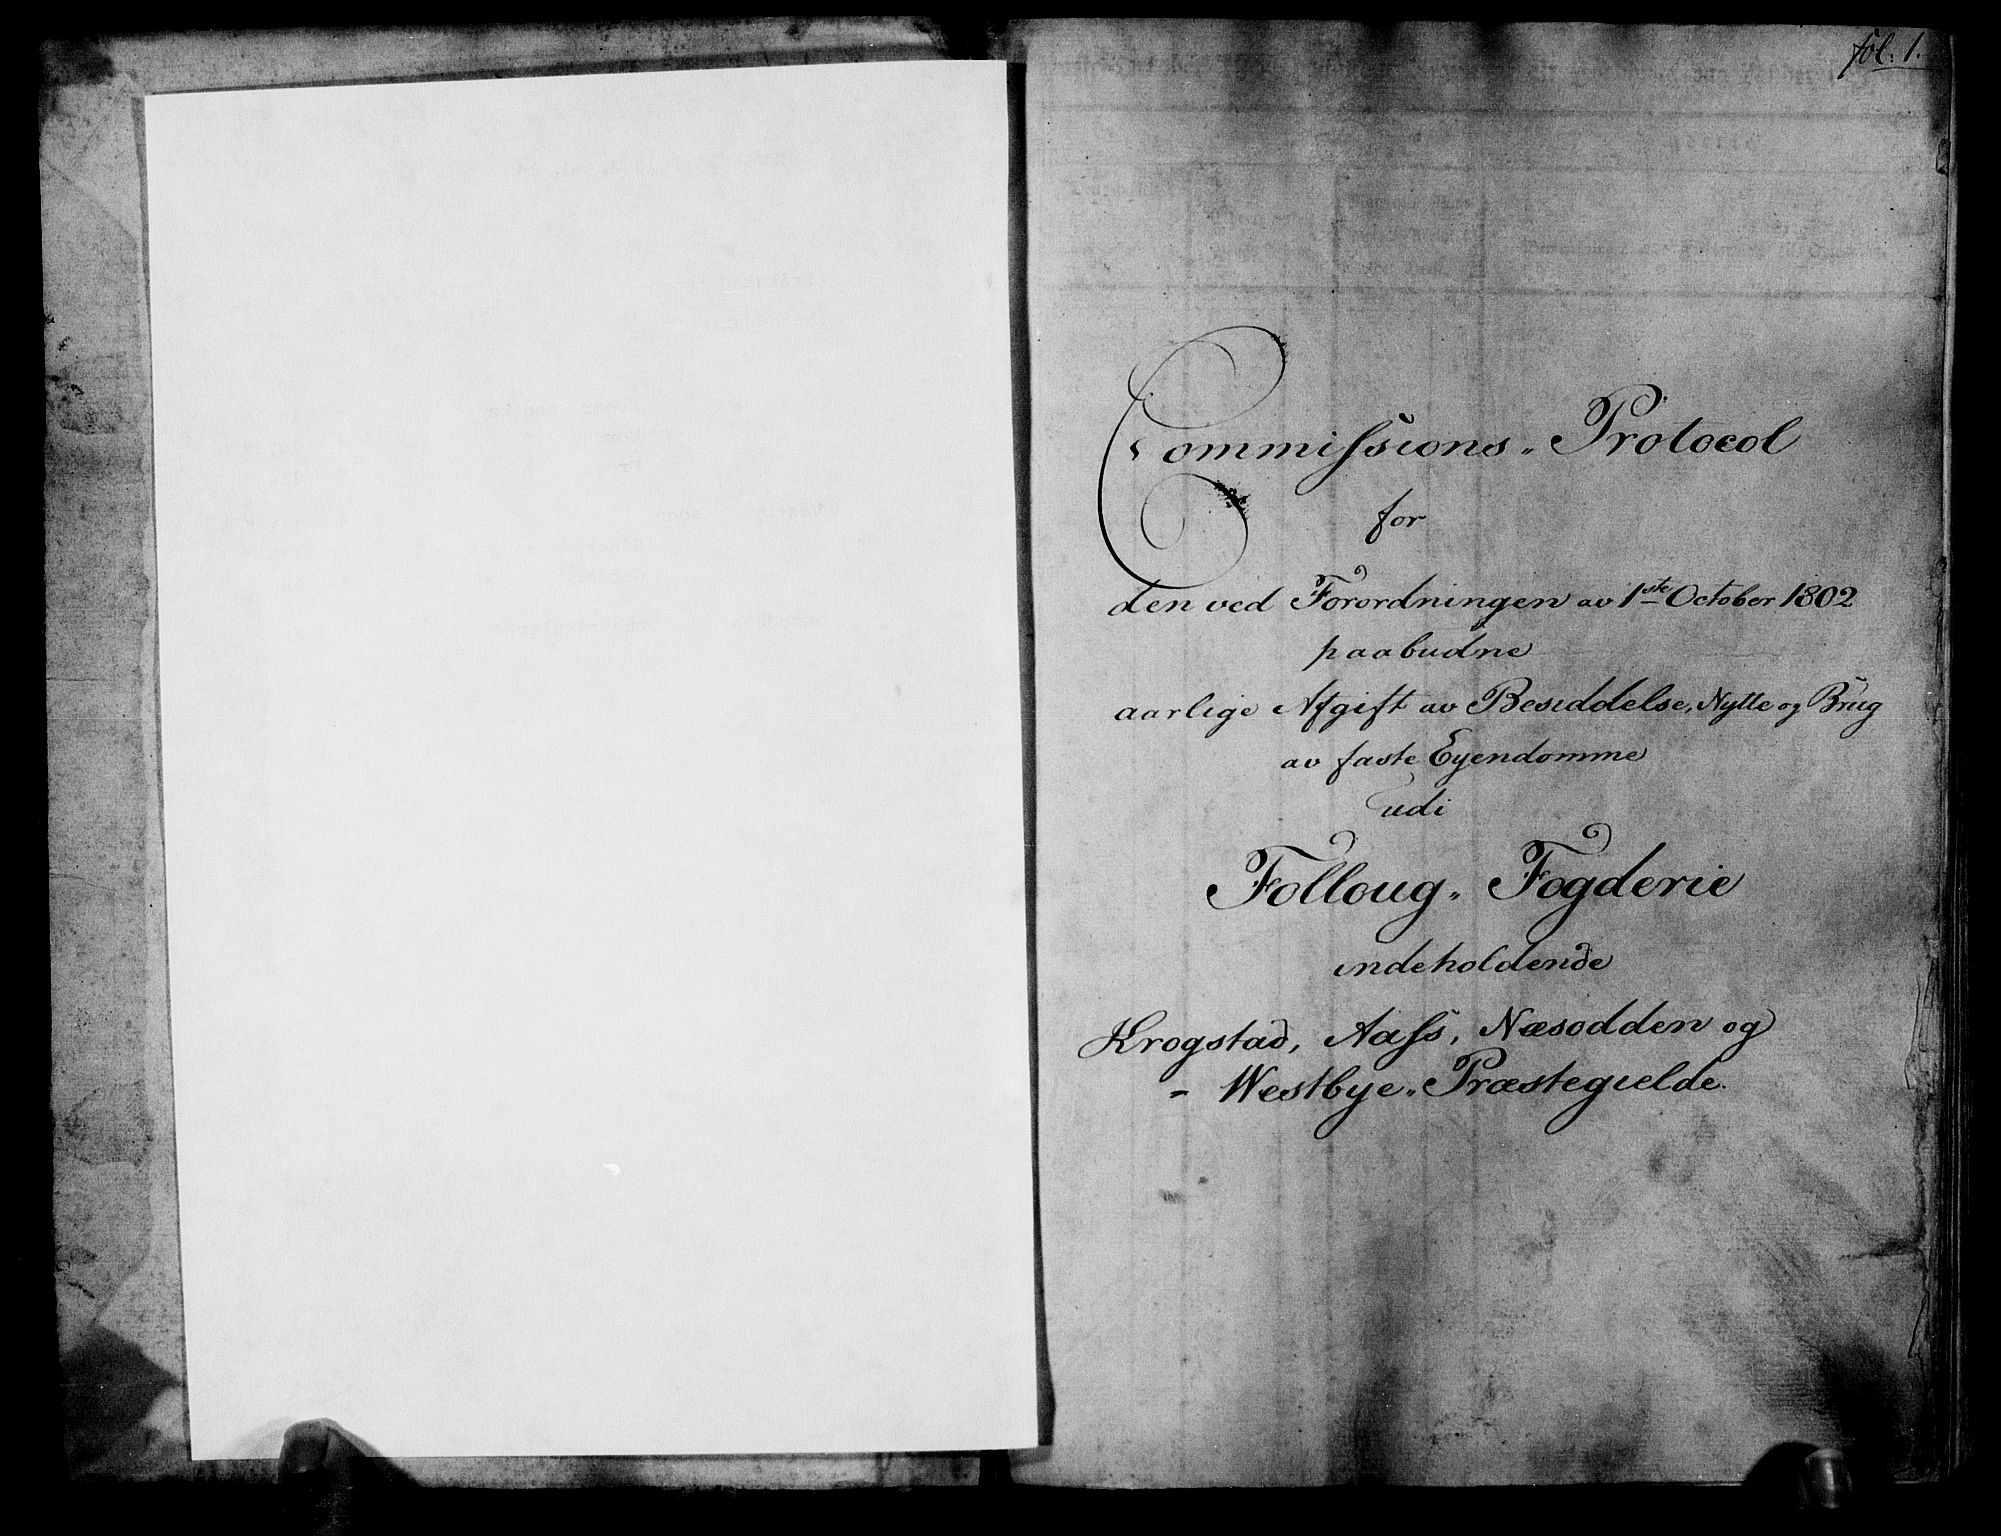 fol: 1.
Commissions-Protocol
for
den ved Forordningen av 1ste October 1802
paabudne
aarlige Afgift av Besiddelse, Nytte og Brug
av faste Eyendomme
udi
Folloug-Fogderie
indeholdende
Krogstad, Aass, Næsodden og
- Westbye-Præstegielde.